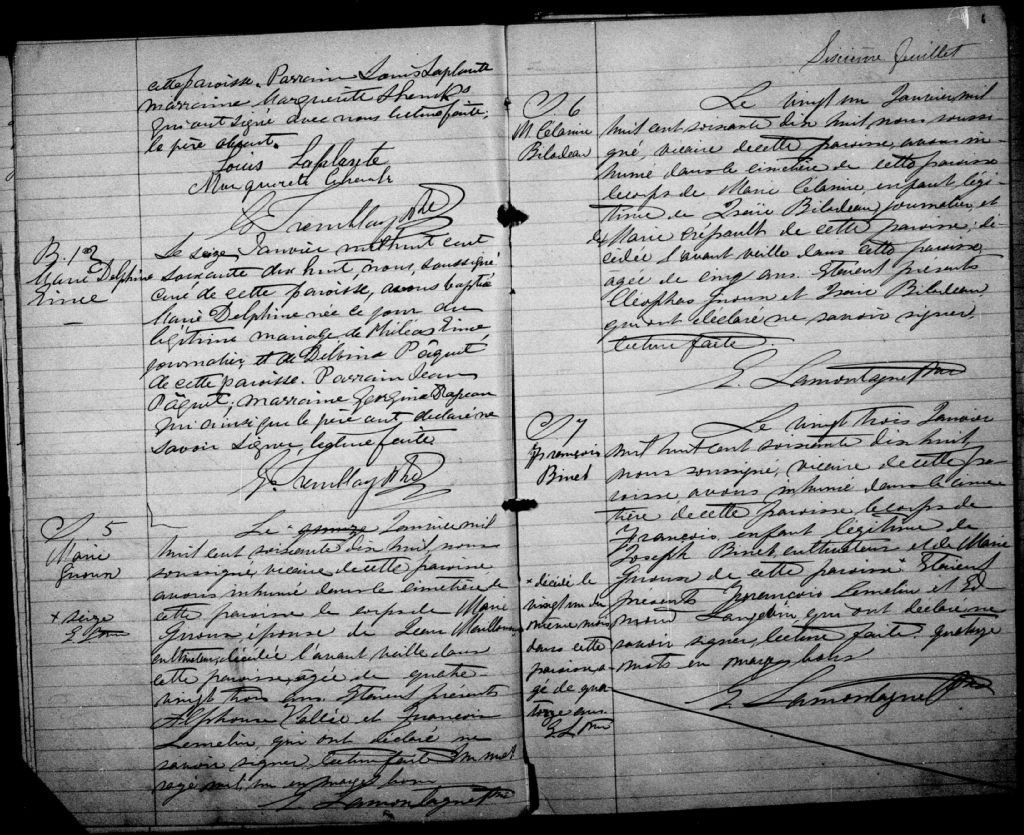 cette paroisse. Parrain Louis Laplante
marraine Marguerite Shanks
qui ont signé avec nous lecture faite,
le père absent.
Louis Laplante
Marguerete
G. Tremblay Ptre
B. 13
Marie Delphine
Le seize Janvier mil huit cent
soixante dix huit, nous, soussigné
curé de cette paroisse, avons baptisé
Marie Delphine née le jour du
légitime mariage de
journalier, et de Delvina Pâquet
de cette paroisse. Parrain Jean
Pâquet, marraine Georgina
qui ainsi que le père ont déclaré ne
savoir signer, lecture faite
G. Tremblay Ptre
S 5
Marie
Giroux
+ seize
E. L. Ptre
Le Janvier mil
huit cent soixante dix huit, nous
soussigné, vicaire de cette paroisse
avons inhumé dans le cimetière de
cette paroisse le corps de Marie
Giroux, épouse de Jean
cultivateur, décédée l'avant veille dans
cette paroisse, agée de quatre-
vingt trois ans. Etaient présents
Alphonse Vallée et François
Lemelin, qui ont déclaré ne
savoir signer, lecture faite. Un mot
rayé nul, un en marge bon
E. Lamontagne Ptre
Sixième feuillet
S 6
M. Célanire
Bilodeau
Le vingt un Janvier mil
huit cent soixante dix huit, nous sous-
igné, vicaire de cette paroisse, avons in-
humé dans le cimetière de cette paroisse
le corps de Marie Célanire, enfant légi-
time de Isaïe Bilodeau journalier, et
de Marie Crépault de cette paroisse, dé-
cédée l'avant veille dans cette paroisse
agée de cinq ans. Etaient présents
Cléophas Giroux et Isaïe Bilodeau
qui ont déclaré ne savoir signer,
lecture faite.
E. Lamontagne Ptre
S 7
François
Binet
Le vingt trois Janvier
mil huit cent soixante dix huit,
nous soussigné, vicaire de cette pa-
roisse avons inhumé dans le cime-
tière de cette paroisse, le corps de
François, enfant légitime de
Joseph Binet, cultivateur et de Marie
Giroux de cette paroisse + Etaient
présents François Lemelin et Ed
mond Langevin, qui ont déclaré ne
savoir signer, lecture faite. quatorze
mots en marge bons
E. Lamontagne Ptre
+ décédé le
vingt un du
même mois
dans cette
paroisse, a-
gé de qua-
torze ans
E. L. Ptre